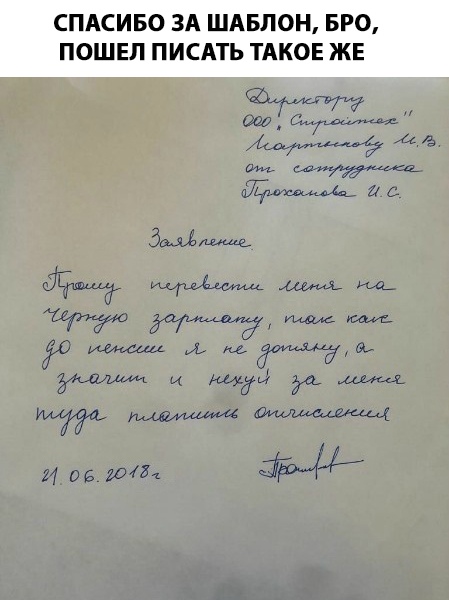 СПАСИБО ЗА ШАБЛОН, БРО,
ПОШЕЛ ПИСАТЬ ТАКОЕ ЖЕ
Директору
ООО "Стройтех"
Мартынову И.В.
от сотрудника
Проханова И.С.
Заявление.
Прошу перевести меня на
чёрную зарплату, так как
до пенсии я не дотяну, а
значит и нехуй за меня
туда платить отчисления
21.06.2018г